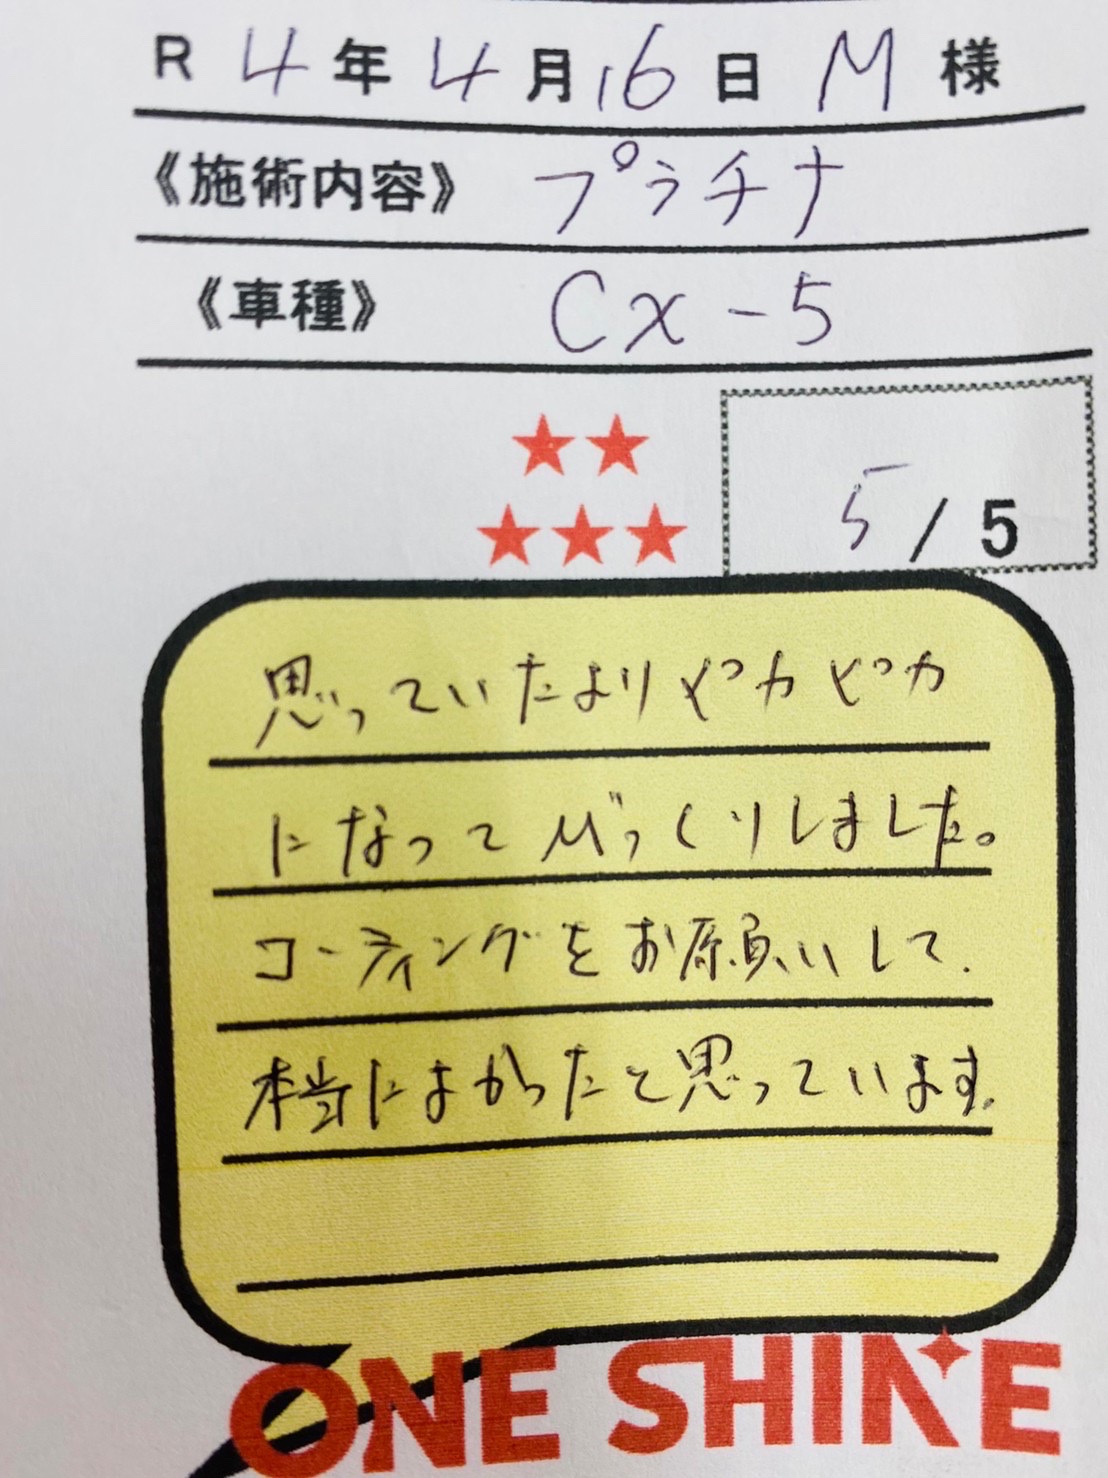 R 4年 4月16日 M 様
《施術内容》 プラチナ
《車種》 CX-5
5/5
思っていたよりピカピカ
になってびっくりしました。
コーティングをお願いして、
本当によかったと思っています。
ONE SHINE